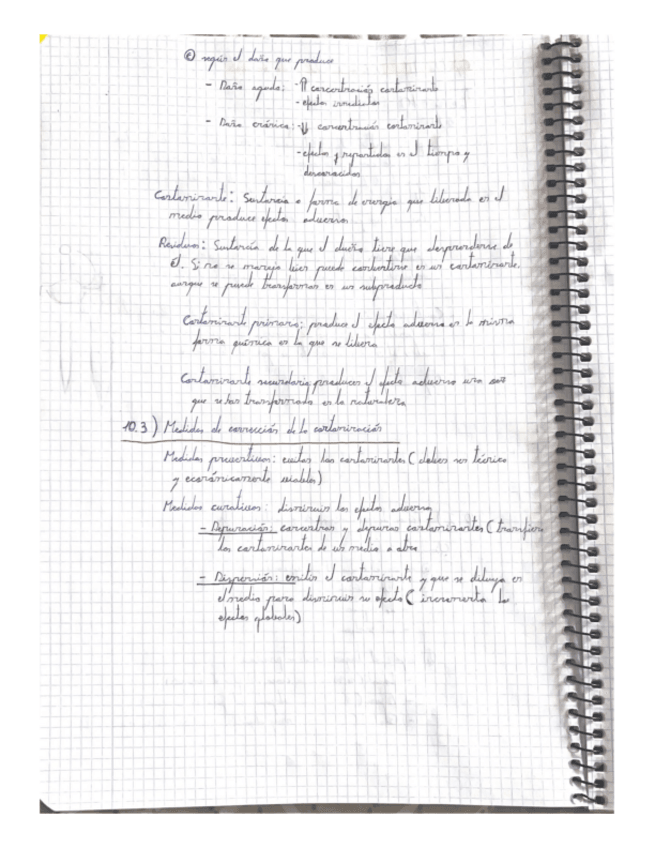 © según el daño que produce
- Daño agudo: - ⇑ concentración contaminante
- efectos inmediatos
- Daño crónico: - ⇓ concentración contaminante
- efectos repartidos en el tiempo y
desconocidos
Contaminante: Sustancia o forma de energía que liberada en el
medio produce efectos adversos
Residuos: Sustancia de la que el dueño tiene que desprenderse de
él. Si no se maneja bien puede convertirse en un contaminante,
aunque se puede transformar en un subproducto
Contaminante primario: produce el efecto adverso en la misma
forma química en la que se libera
Contaminante secundario: produce el efecto adverso una vez
que se han transformado en la naturaleza
10.3) Medidas de corrección de la contaminación
Medidas preventivas: evitar los contaminantes (deben ser técnica
y económicamente viables)
Medidas curativas: disminuir los efectos adversos
- Depuración: concentran y depuran contaminantes (transfiere
los contaminantes de un medio a otro
- Dispersión: emitir el contaminante y que se diluya en
el medio para disminuir su efecto (incrementa los
efectos globales)